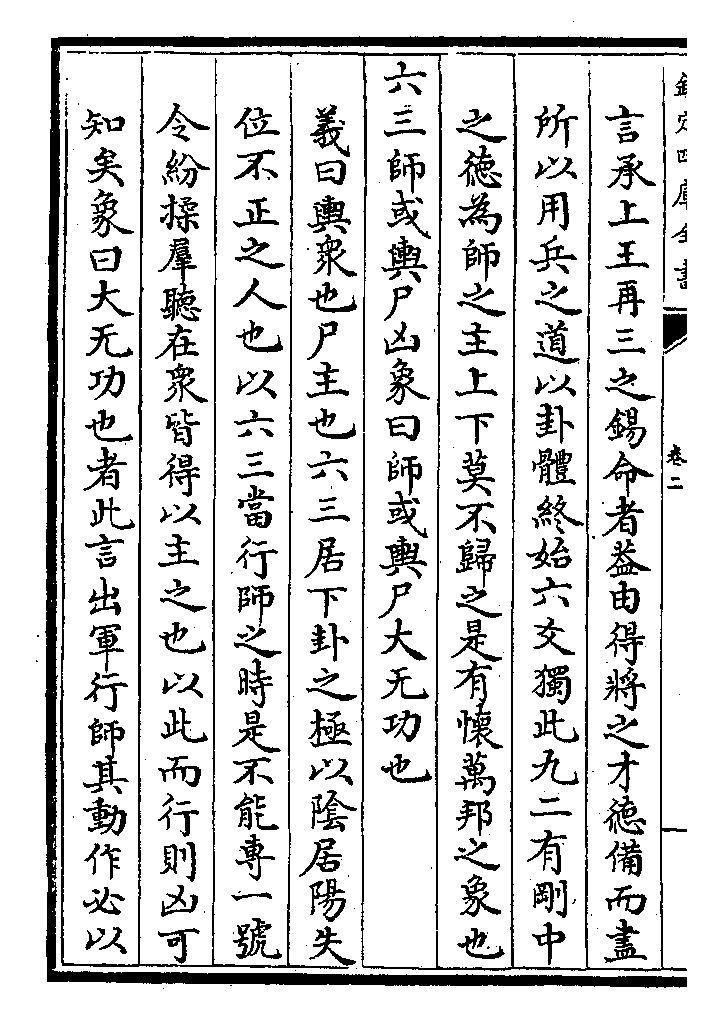 欽定四庫全書
卷二
言承上王再三之錫命者葢由得將之才徳備而盡
所以用兵之道以卦體終始六爻獨此九二有剛中
之徳為師之主上下莫不歸之是有懷萬邦之象也
六三師或輿尸凶象曰師或輿尸大无功也
義曰輿衆也尸主也六三居下卦之極以陰居陽失
位不正之人也以六三當行師之時是不能專一號
令紛揉羣聽在衆皆得以主之也以此而行則凶可
知矣象曰大无功也者此言出軍行師其動作必以